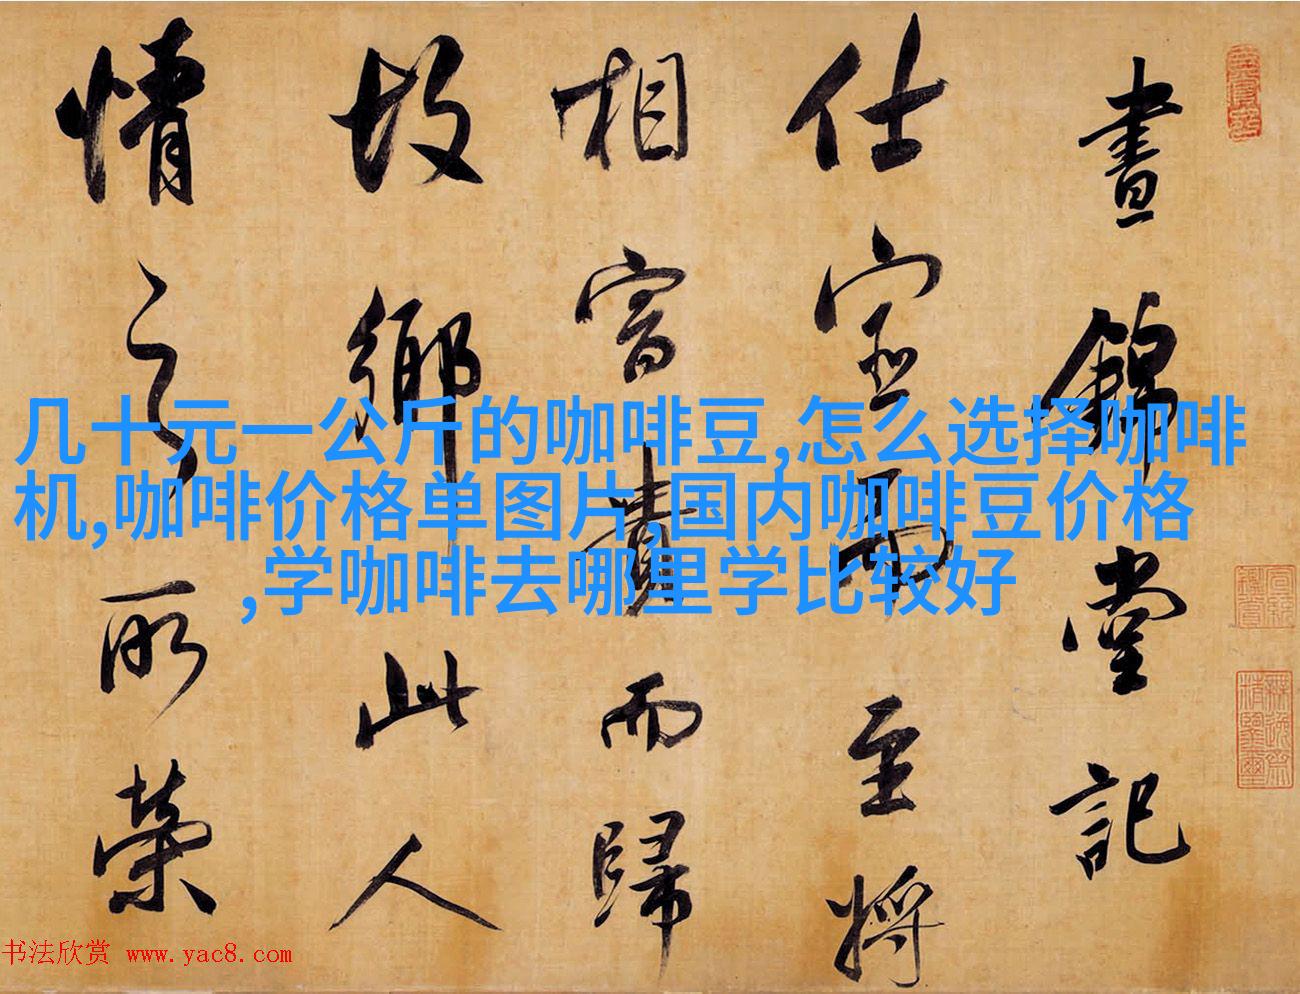 晝錦堂記
仕宦而至將
相富貴而歸
故鄉此人
情之所榮
几十元一公斤的咖啡豆,怎么选择咖啡
机,咖啡价格单图片,国内咖啡豆价格
,学咖啡去哪里学比较好
书法欣赏 www.yac8.com